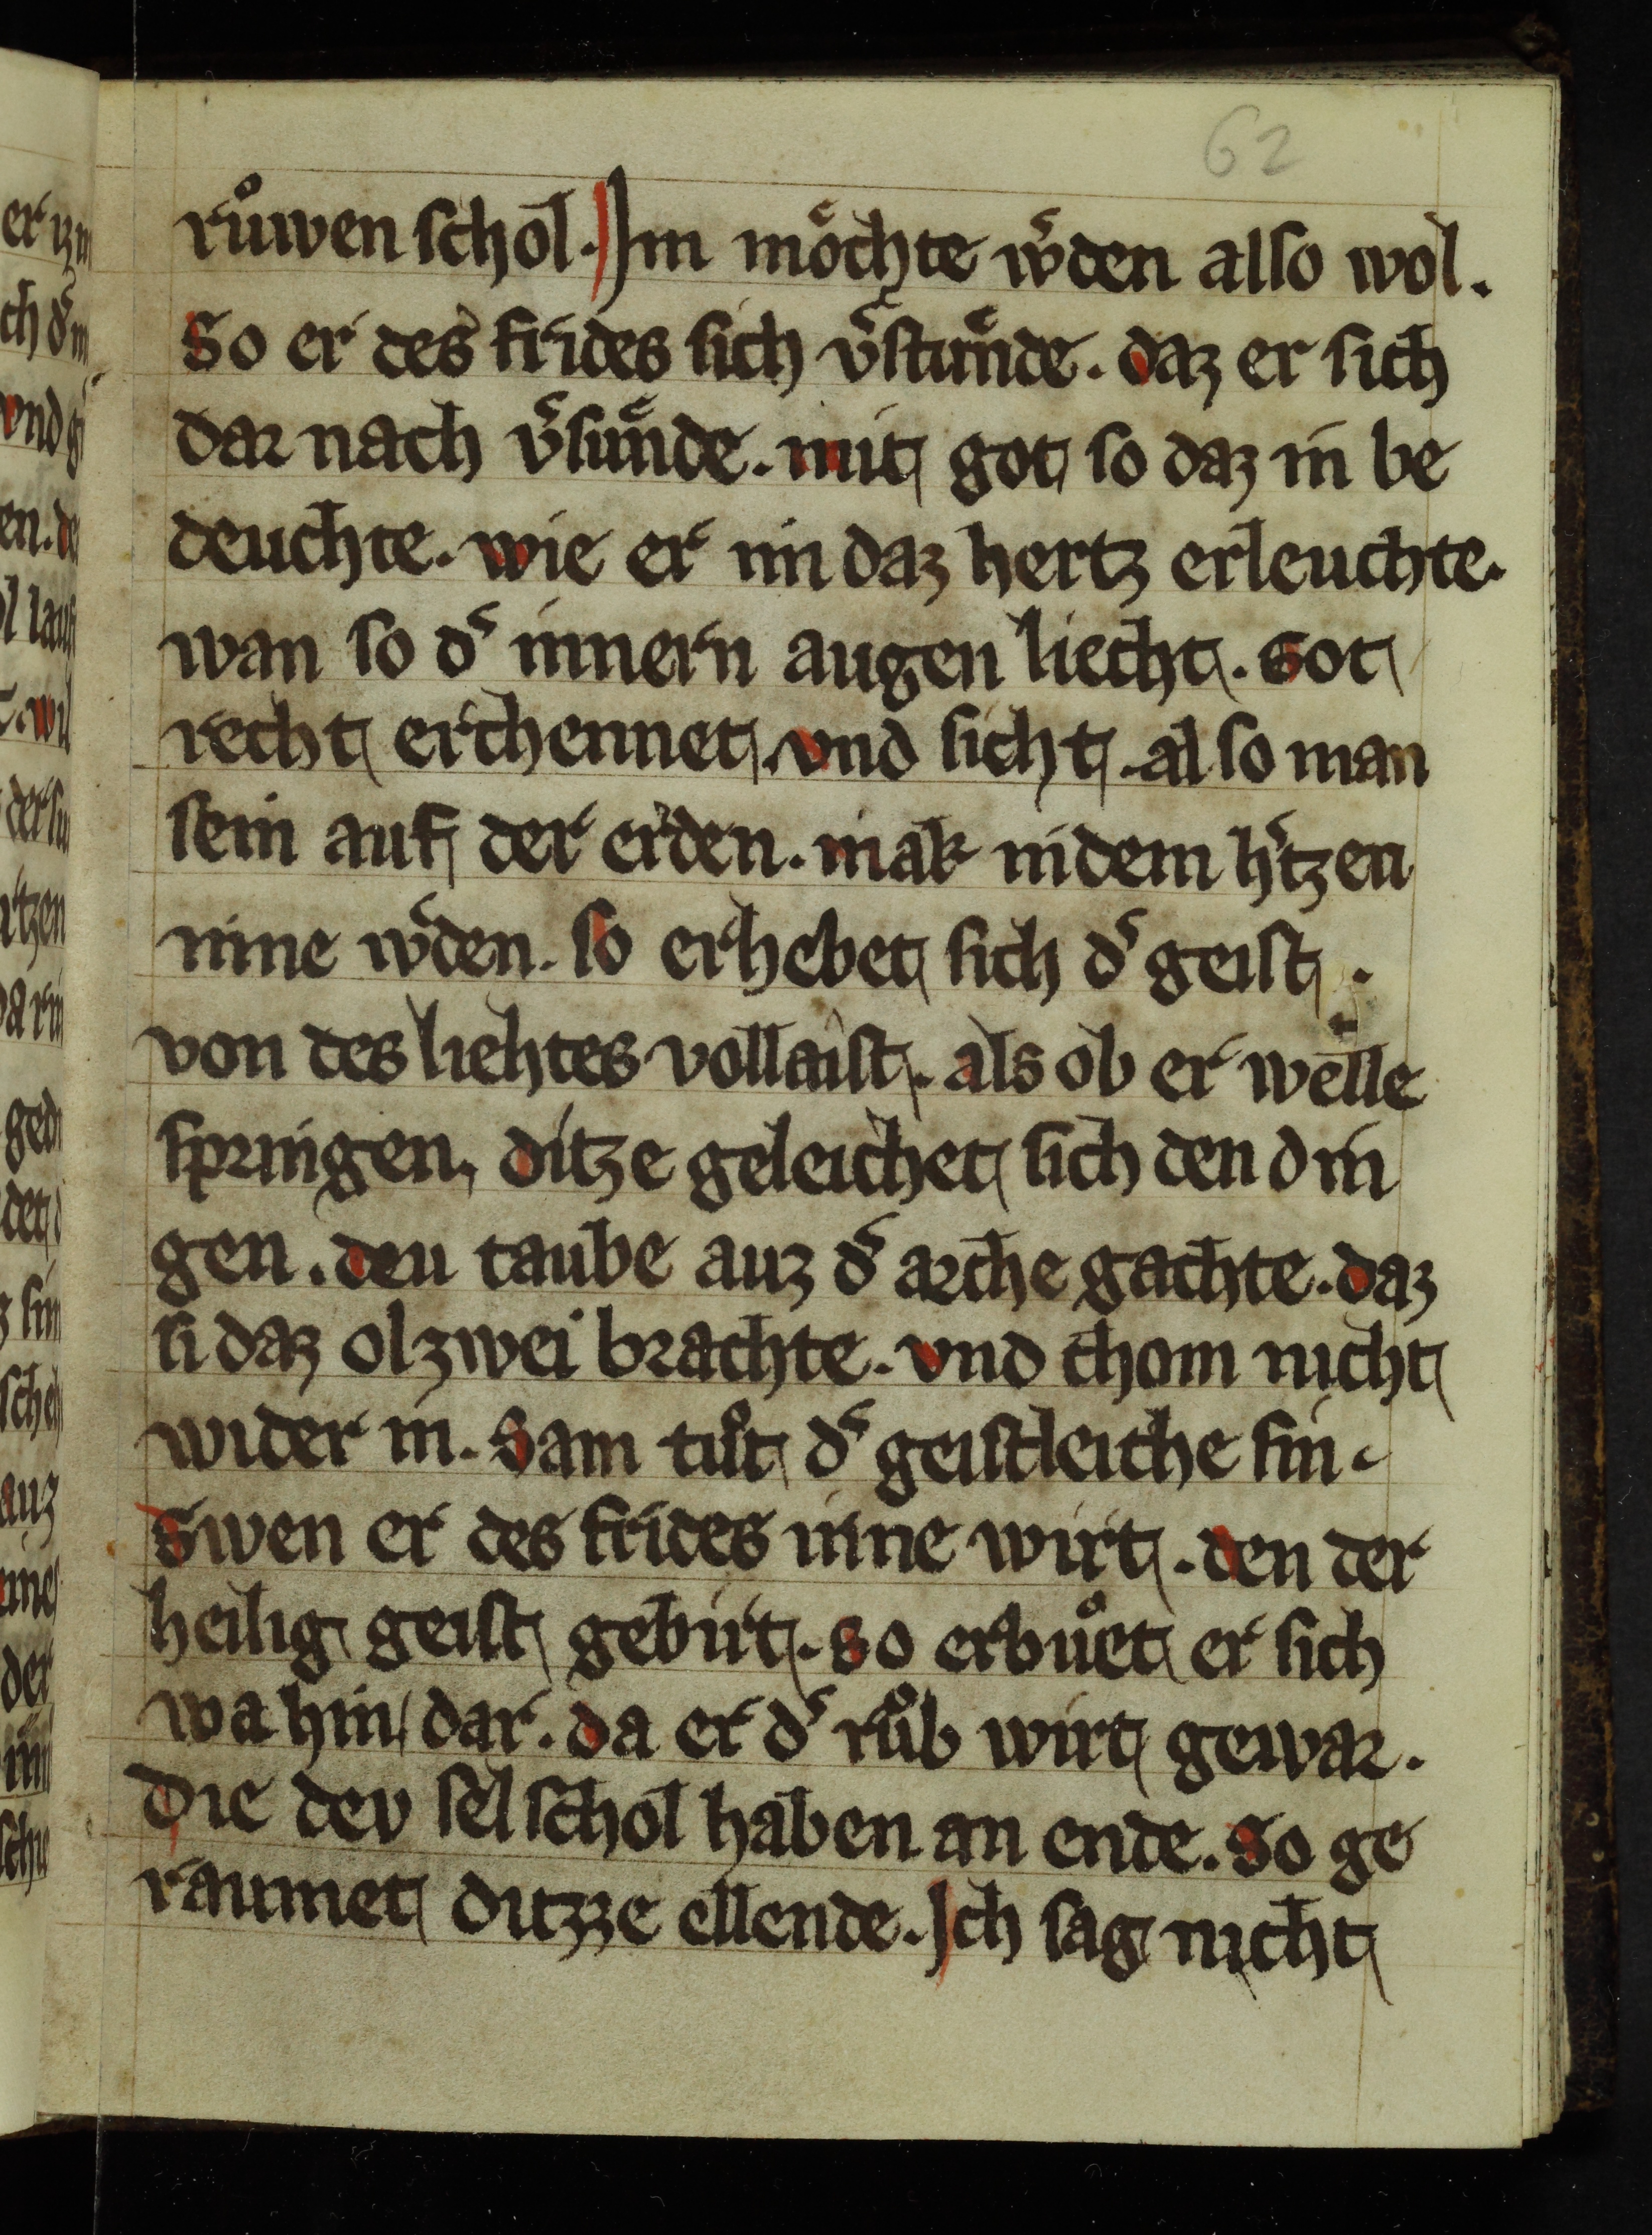 62
růwen schol. Jm mo̾chte w̾den also wol.
So er des frides sich v̾stuͤnde. daz er sich
dar nach v̾suͤnde. mit got so daz in be
deuchte. wie er im daz hertz erleuchte.
wan so d̾ innern augen liecht. Got
recht erchennet. vnd sicht. also man
sein auf der erden. mak in dem h̾tzen
inne w̾den. so erhebet sich d̾ geist.
von des liehtes vollaist. als ob er welle
springen, ditze geleichet sich den din
gen. deu taube auz d̾ arche gachte. daz
si daz olzwei brachte. vnd chom nicht
wider in. Sam tůt d̾ geistleiche sin.
Swen er des frides inne wirt. den der
heilig geist gebirt. So erbůet er sich
wa hin dar. da er d̾ růb wirt gewar.
Die dev sel schol haben an ende. So ge
raumet ditzze ellende. Jch sag nicht